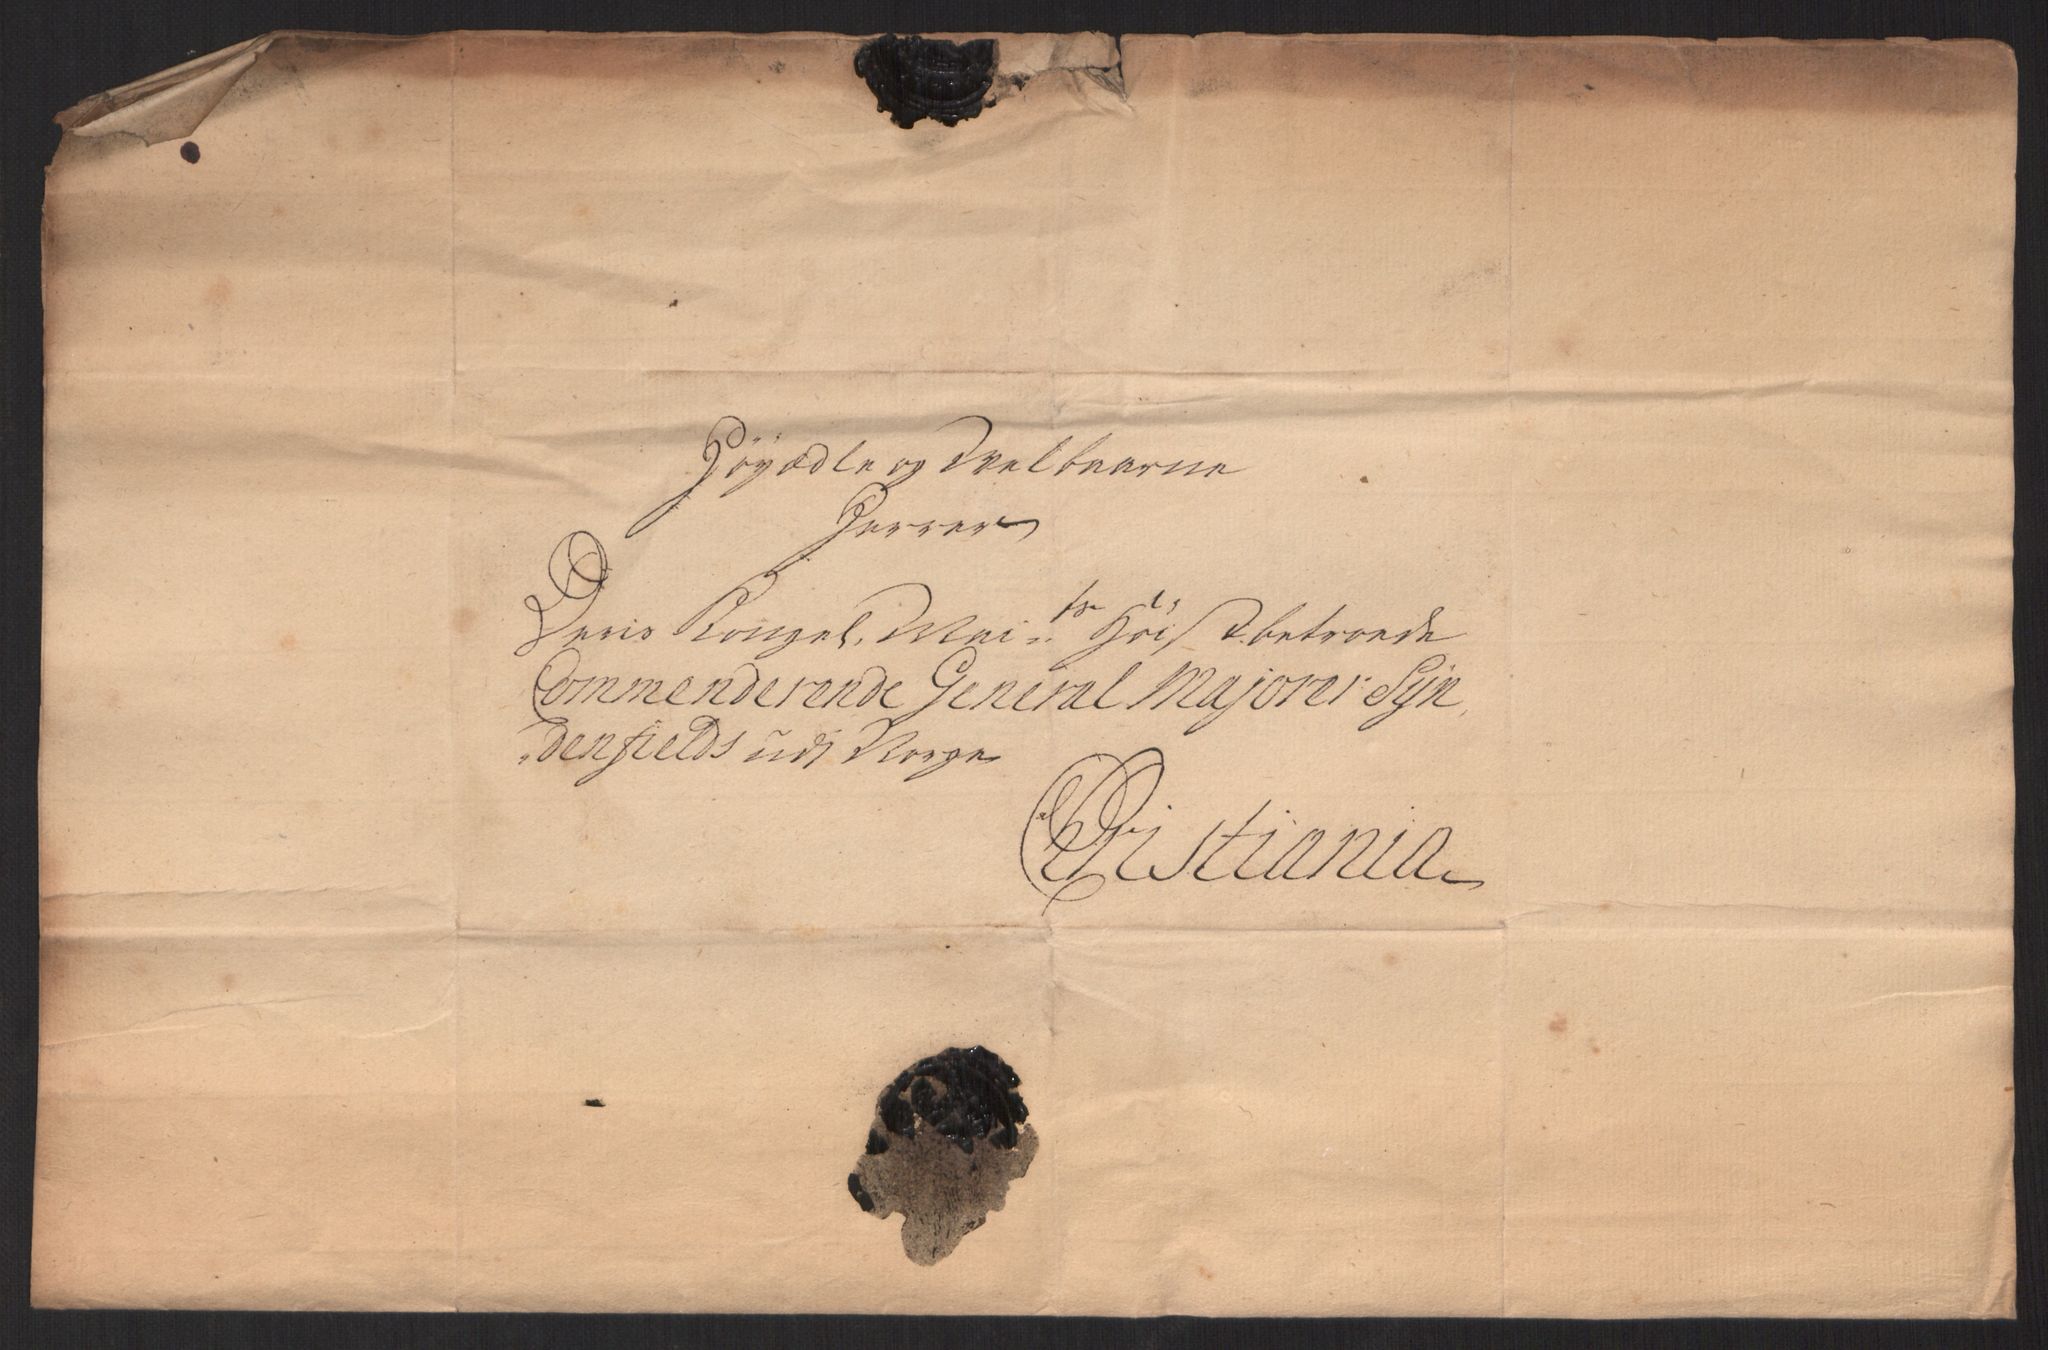 Höyædle og Welbaarne
Herrer
Deris Kongel. Mai:ts Höist betroede
Commenderende General Majorer Syn
denfields udj Norge
Christiania